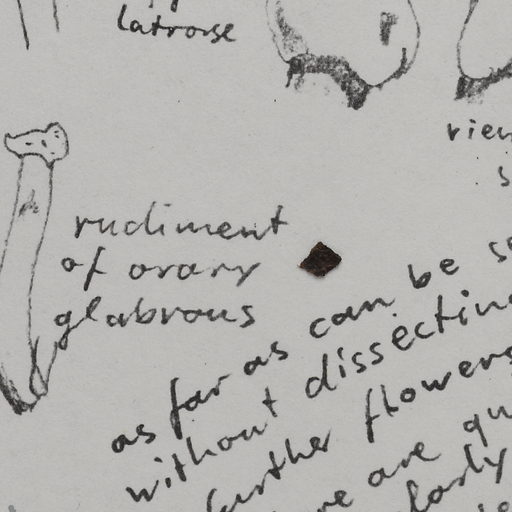 latrorse
rudiment
of ovary
glabrous
as far as can be
without dissecting
further flowers
are